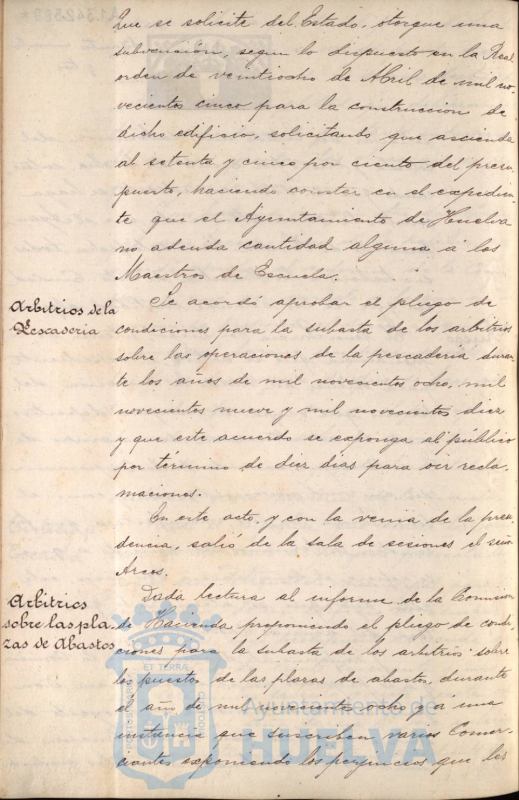 Que se solicite del Estado, otorgue una
subvención, según lo dispuesto en la Real
orden de veintiocho de Abril de mil no-
vecientos cinco para la construcción de
dicho edificio, solicitando que ascienda
al setenta y cinco por ciento del presu-
puesto, haciendo constar en el expedien-
te que el Ayuntamiento de Huelva
no adeuda cantidad alguna á los
Maestros de Escuela.
Arbitrios de la
Pescaderia
Se acordó aprobar el pliego de
condiciones para la subasta de los arbitrios
sobre las operaciones de la pescadería duran-
te los años de mil novecientos ocho, mil
novecientos nueve y mil novecientos diez
y que este acuerdo se exponga al público
por término de diez dias para oir recla-
maciones.
En este acto, y con la venia de la presi-
dencia, salió de la sala de sesiones el señor
Arcos.
Arbitrios
sobre las pla-
zas de Abastos
Dada lectura al informe de la Comision
de Hacienda proponiendo el pliego de condi-
ciones para la subasta de los arbitrios sobre
los puestos de las plazas de abastos, durante
el año de mil novecientos ocho y á una
instancia que suscriben varios Comer-
ciantes exponiendo los perjuicios que les
ET TERRA
Ayuntamiento de
HUELVA